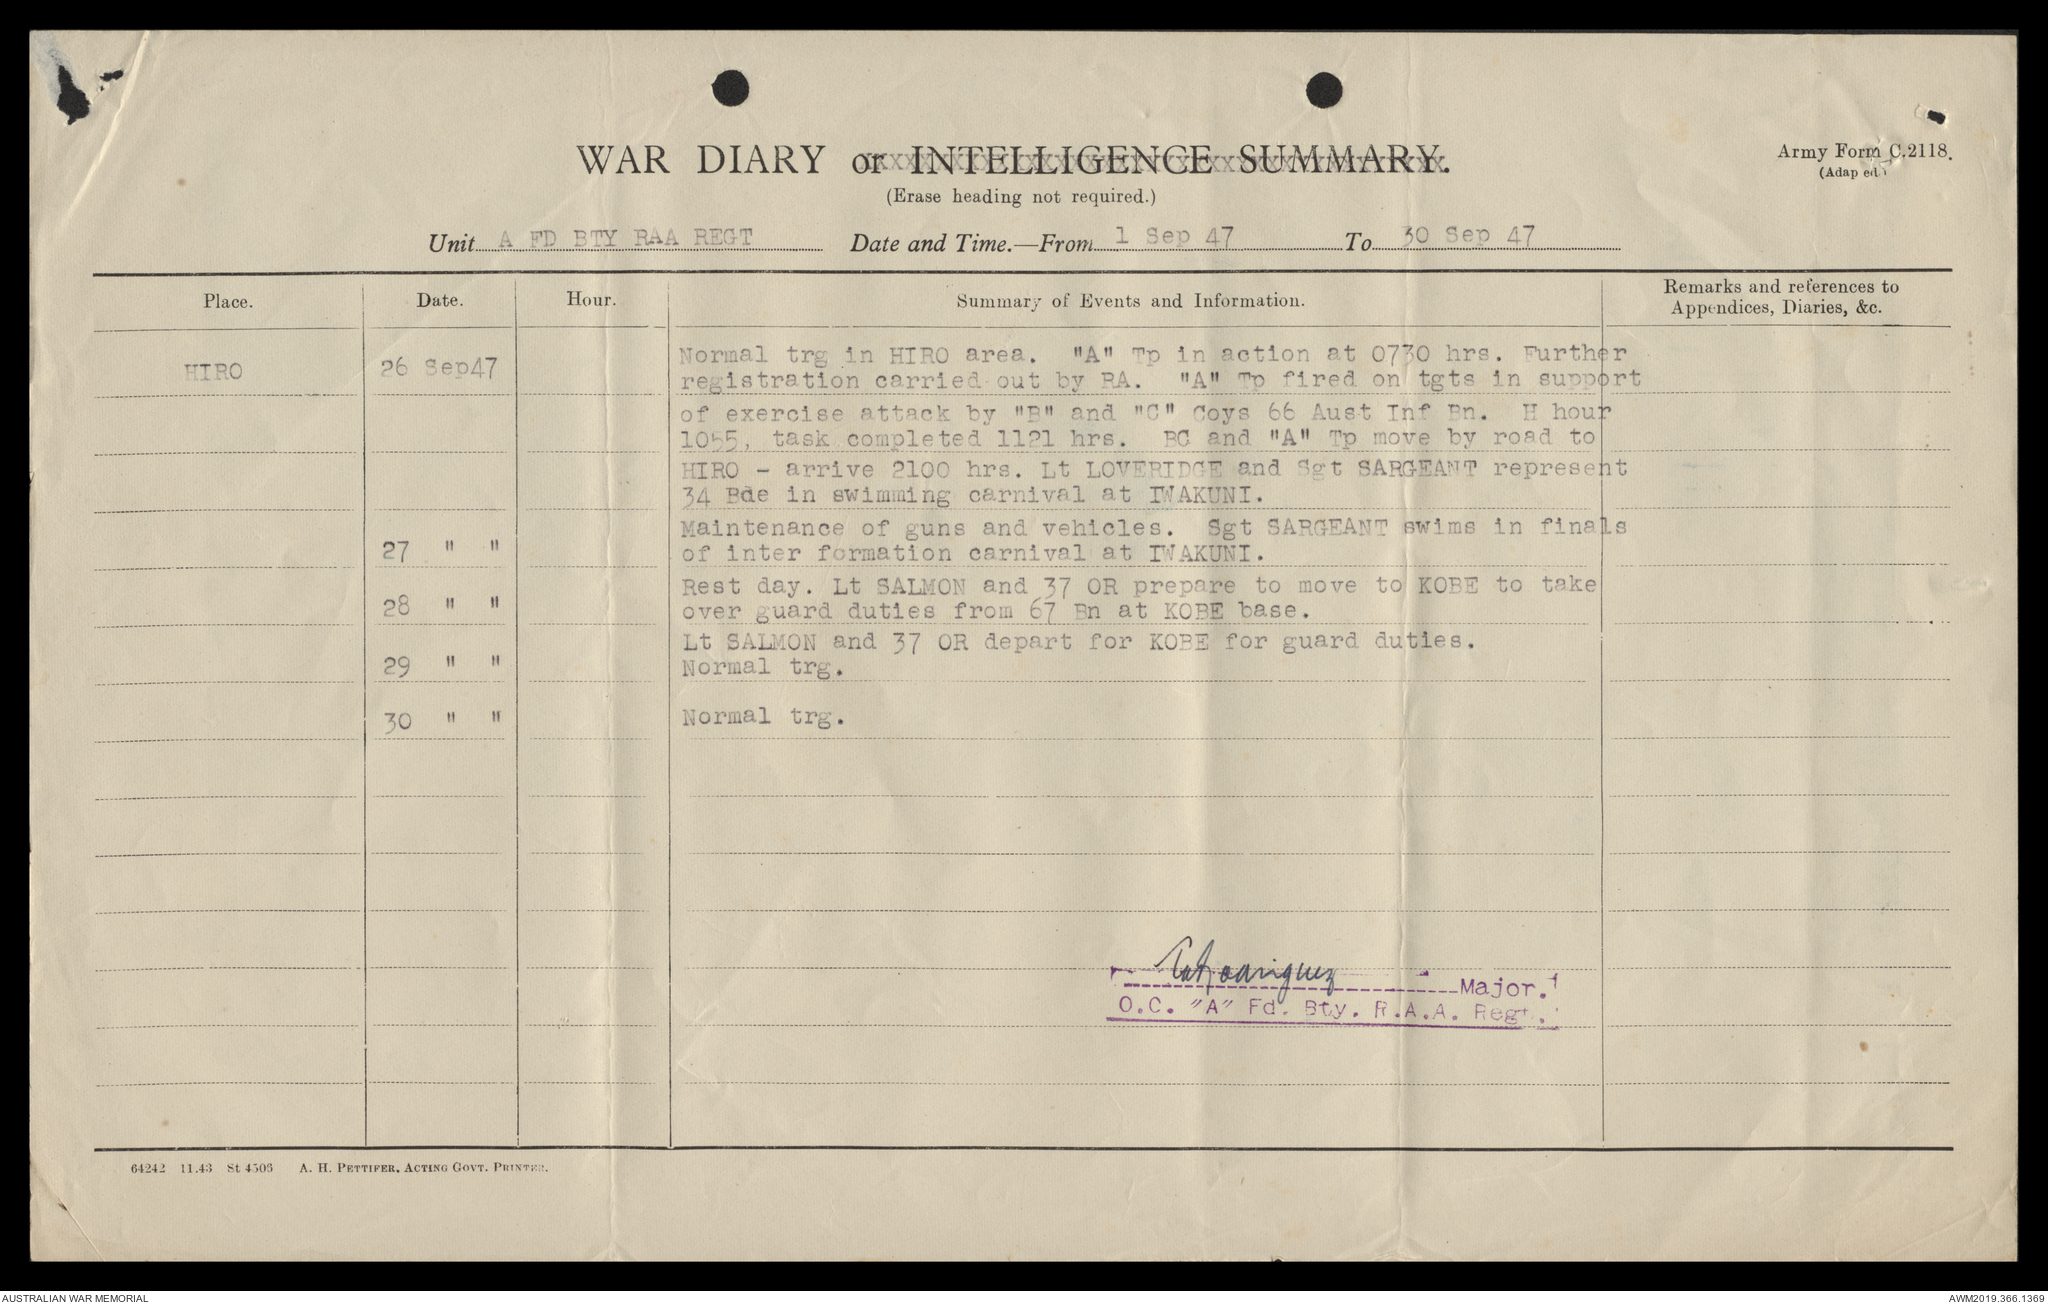 WAR DIARY or INTELLIGENCE SUMMARY.
Army Form C.2118.
(Adap ed)
(Erase heading not required.)
Unit A FD BTY RAA REGT Date and Time.—From 1 Sep 47 To 30 Sep 47
Place. Date. Hour. Summary of Events and Information. Remarks and references to
Appendices, Diaries, &c.
HIRO 26 Sep47 Normal trg in HIRO area. "A" Tp in action at 0730 hrs. Further
registration carried out by RA. "A" Tp fired on tgts in support
of exercise attack by "B" and "C" Coys 66 Aust Inf Bn. H hour
1055, task completed 1121 hrs. BC and "A" Tp move by road to
HIRO - arrive 2100 hrs. Lt LOVERIDGE and Sgt SARGEANT represent
34 Bde in swimming carnival at IWAKUNI.
27 " " Maintenance of guns and vehicles. Sgt SARGEANT swims in finals
of inter formation carnival at IWAKUNI.
28 " " Rest day. Lt SALMON and 37 OR prepare to move to KOBE to take
over guard duties from 67 Bn at KOBE base.
29 " " Lt SALMON and 37 OR depart for KOBE for guard duties.
Normal trg.
30 " " Normal trg.
Major.
O.C. "A" Fd. Bty. R.A.A. Regt.
64242 11.43 St 4506 A. H. PETTIFER, ACTING GOVT. PRINTER.
AUSTRALIAN WAR MEMORIAL
AWM2019.366.1369